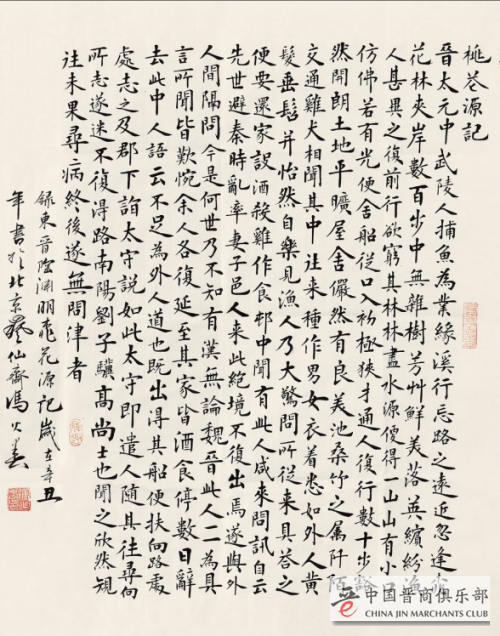 桃花源記
晉太元中武陵人捕魚為業緣溪行忘路之遠近忽逢桃
花林夾岸數百步中無雜樹芳草鮮美落英繽紛漁
人甚異之復前行欲窮其林林盡水源便得一山山有小口
仿佛若有光便舍船從口入初極狹才通人復行數十步豁
然開朗土地平曠屋舍儼然有良美池桑竹之屬阡陌
交通雞犬相聞其中往來種作男女衣着悉如外人黃
髮垂髫并怡然自樂見漁人乃大驚問所從來具答之
便要還家設酒殺雞作食邨中聞有此人咸來問訊自云
先世避秦時亂率妻子邑人來此絕境不復出焉遂與外
人間隔問今是何世乃不知有漢無論魏晉此人一一為具
言所聞皆歎惋余人各復延至其家皆酒食停數日辭
去此中人語云不足為外人道也既出得其船便扶向路處
處志之及郡下詣太守說如此太守即遣人隨其往尋向
所志遂迷不復得路南陽劉子驥高尚士也聞之欣然規
往未果尋病終後遂無問津者
錄東晉陶淵明桃花源記歲在辛丑
年書於北京仙齋馮
中国晋商俱乐部
CHINA JIN MERCHANTS CLUB